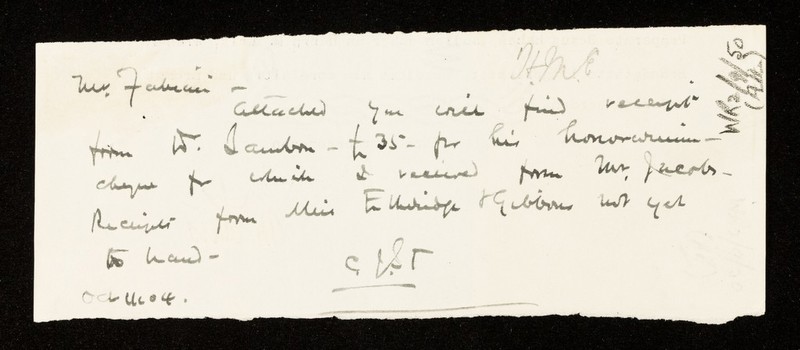 Mr. Fabian -
attached you will find receipt
from Dr. Sambon - £35 - for his honorarium -
cheque for which I received from Mr. Jacobs -
Receipts from Miss Etheridge & Gibbons not yet
to hand -
C. J. S. T
Oct 11. 04.